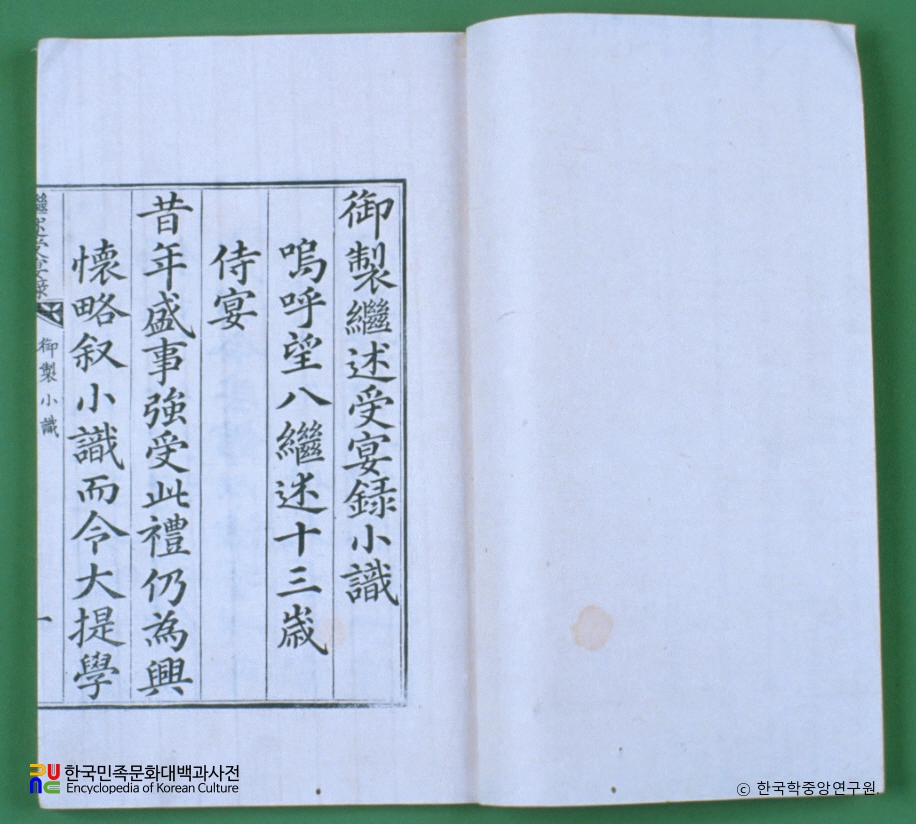 御製繼述受宴録小識
嗚呼望八繼述十三歲
侍宴
昔年盛事強受此禮仍為興
懷略叙小識而令大提學
繼述受宴錄
御製小識
一
한국민족문화대백과사전
Encyclopedia of Korean Culture
ⓒ 한국학중앙연구원.